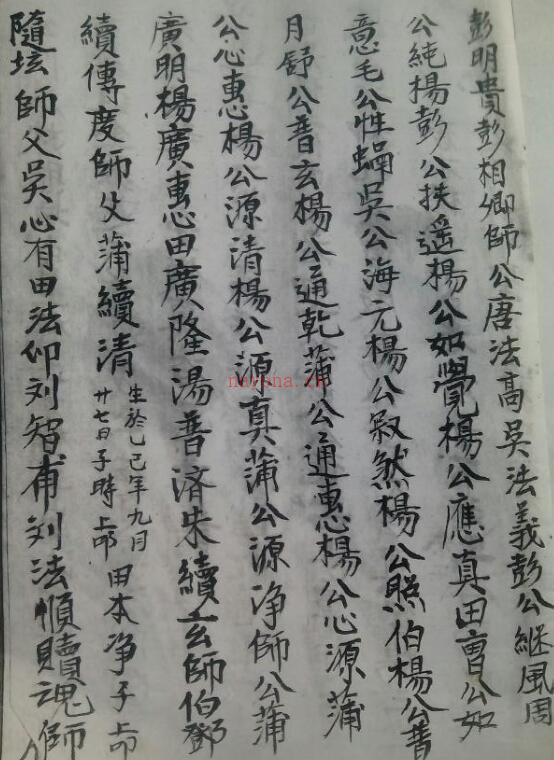 彭明貴彭相卿師公唐法高吳法義彭公継風周
公純楊彭公扶遥楊公如覺楊公應真田曹公如
意毛公性蝸吳公海元楊公寂然楊公照伯楊公普
月舒公普玄楊公通乾蒲公通惠楊公心源蒲
公心惠楊公源清楊公源真蒲公源净師公蒲
廣明楊廣惠田廣隆湯普済朱續玄師伯鄧
續傳度師父蒲續清生於乙己年九月廿七日子時上叩田本净子上叩
隨坛師父吳心有田法仰刘智甫刘法順贖魂師